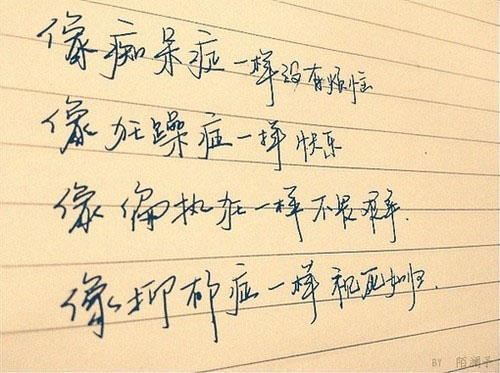 像痴呆症一样没有烦忧
像狂躁症一样快乐
像偏执狂一样不畏艰辛.
像抑郁症一样视死如归.
BY 陌澜予